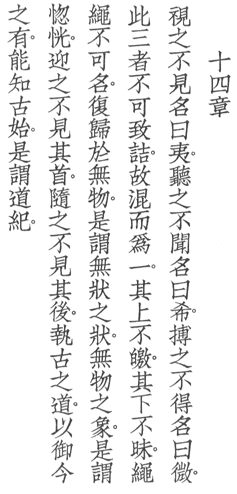 十四章
視之不見名曰夷。聽之不聞名曰希。搏之不得名曰微。
此三者不可致詰。故混而爲一。其上不皦。其下不昧。繩
繩不可名。復歸於無物。是謂無狀之狀。無物之象。是謂
惚恍。迎之不見其首。隨之不見其後。執古之道。以御今
之有。能知古始。是謂道紀。